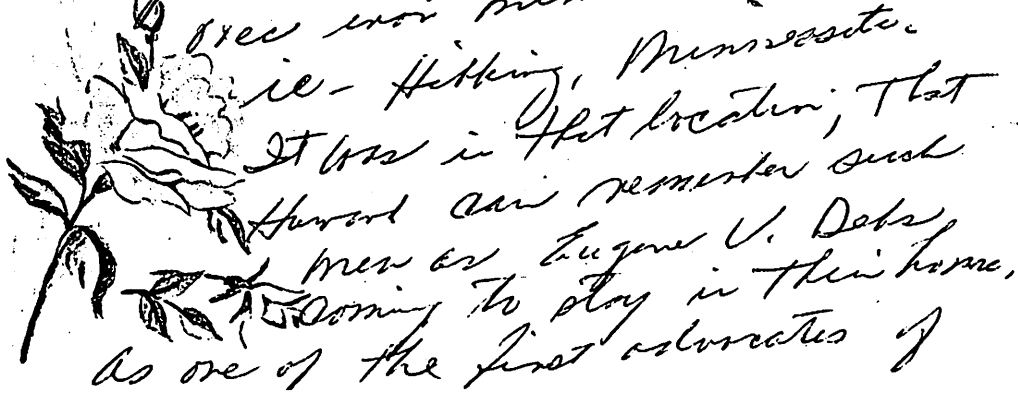 ie - Hibbing, Minnesota.
It was in that location, that
Howard can remember such
men as Eugene V. Debs
coming to stay in their home.
As one of the first advocates of